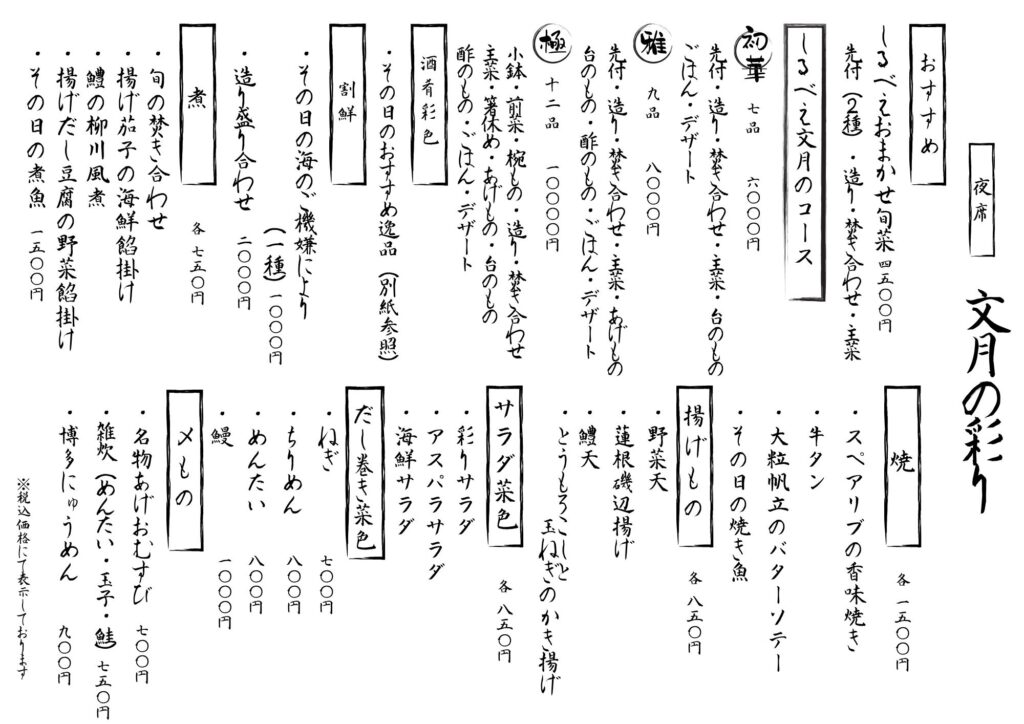 夜席
文月の彩り
おすすめ
しるべえおまかせ旬菜 四五〇〇円
先付(2種)・造り・焚き合わせ・主菜
しるべえ文月のコース
初華 七品 六〇〇〇円
先付・造り・焚き合わせ・主菜・台のもの
ごはん・デザート
雅 九品 八〇〇〇円
先付・造り・焚き合わせ・主菜・あげもの
台のもの・酢のもの・ごはん・デザート
極 十二品 一〇〇〇〇円
小鉢・前菜・椀もの・造り・焚き合わせ
主菜・箸休め・あげもの・台のもの
酢のもの・ごはん・デザート
酒肴彩色
・その日のおすすめ逸品(別紙参照)
割鮮
・その日の海のご機嫌により
(一種)一〇〇〇円
・造り盛り合わせ 二〇〇〇円
煮
各 七五〇円
・旬の焚き合わせ
・揚げ茄子の海鮮餡掛け
・鱧の柳川風煮
・揚げだし豆腐の野菜餡掛け
・その日の煮魚 一五〇〇円
焼
各 一五〇〇円
・スペアリブの香味焼き
・牛タン
・大粒帆立のバターソテー
・その日の焼き魚
揚げもの
各 八五〇円
・野菜天
・蓮根磯辺揚げ
・鱧天
・とうもろこしと
玉ねぎのかき揚げ
サラダ菜色
各 八五〇円
・彩りサラダ
・アスパラサラダ
・海鮮サラダ
だし巻き菜色
・ねぎ 七〇〇円
・ちりめん 八〇〇円
・めんたい 八〇〇円
・鰻 一〇〇〇円
〆もの
・名物あげおむすび 七〇〇円
・雑炊(めんたい・玉子・鮭)七五〇円
・博多にゅうめん 九〇〇円
※税込価格にて表示しております